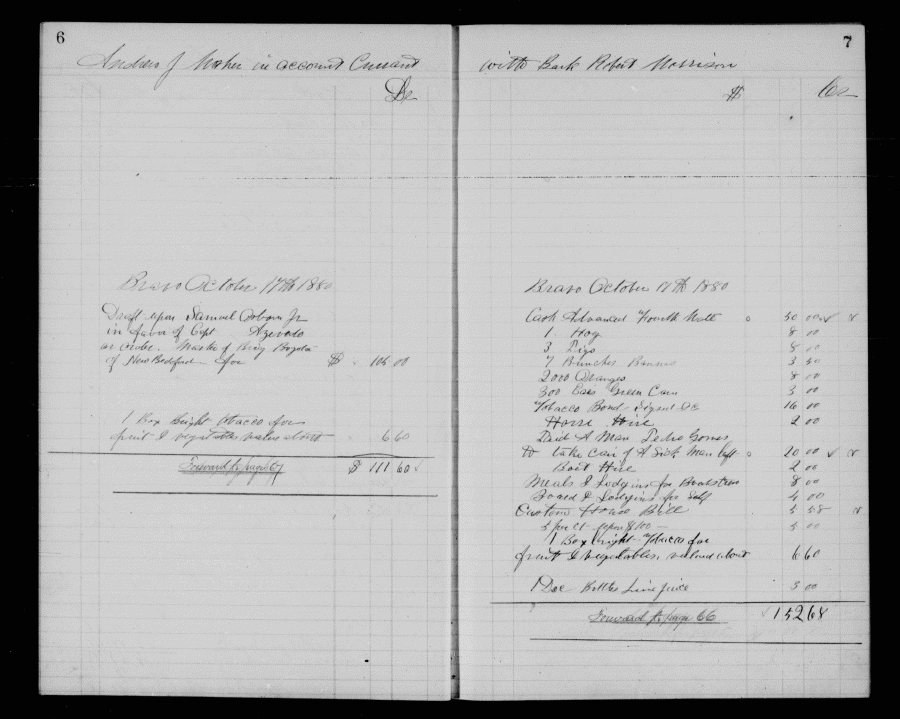 6
Andrew J Maher in account Current
Dr
Bravo October 17th 1880
Draft upon Samuel Osborn Jr
in favor of Capt Azevedo
or order. Master of Brig
of New Bedford for $ 105 00
1 Box Bright tobacco for
fruit & vegetables value about 6 60
Forward to page 67 $ 111 60
7
with Bark Robert Morrison
$ Cr
Bravo October 17th 1880
Cash Advanced Fourth Mate 50 00
1 Hog 8 00
3 Pigs 8 00
7 Bunches 3 50
2000 Oranges 8 00
300 Ears Green Corn 3 00
Tobacco Bond 16 00
Horse Hire 2 00
Paid A Man Pedro Gomes
to take Care of A Sick Man left 20 00
Boat Hire 2 00
Meals & Lodgins for 8 00
Board & Lodgins for Self 4 00
Custom House Bill 5 58
5 per ct upon $100 — 5 00
1 Box bright Tobacco for
fruit & vegetables valued about 6 60
1 Doz Bottles Lime juice 3 00
Forward to page 66 152 68